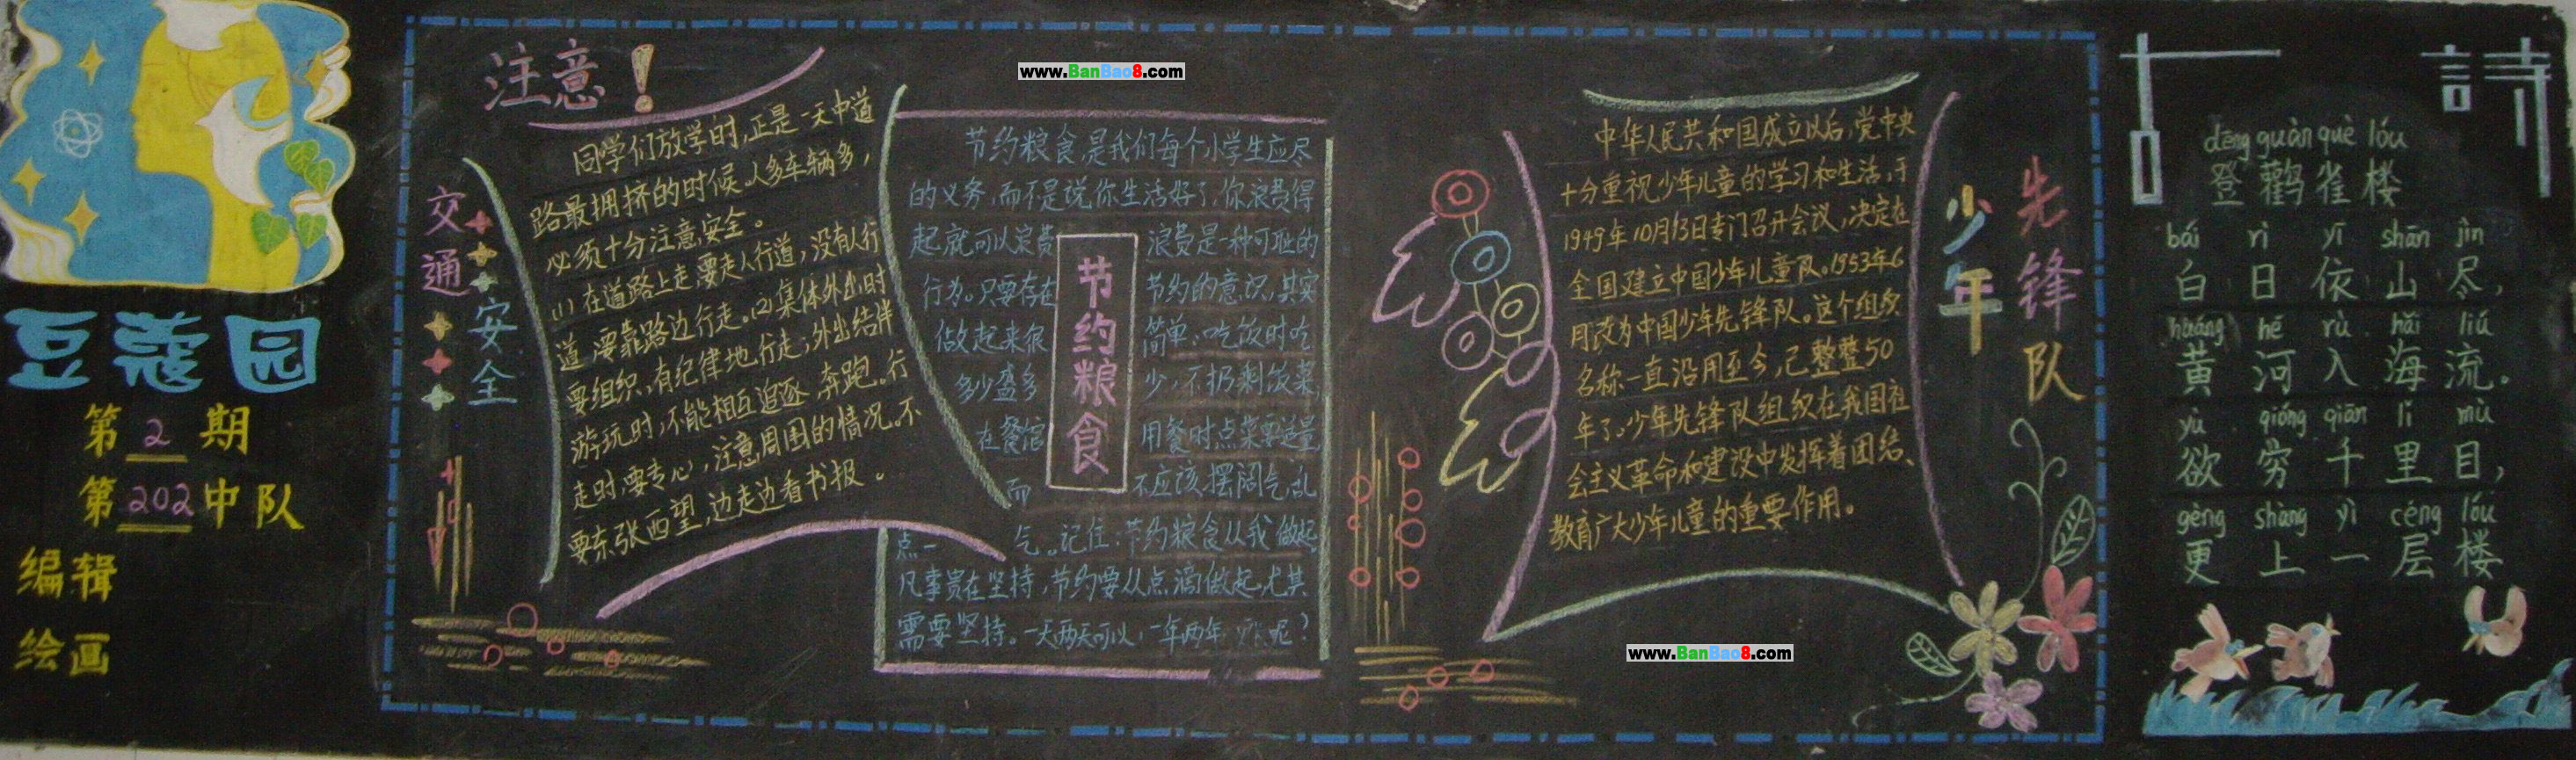 豆蔻园
第 2 期
第 202 中队
编辑
绘画
注意！
交通安全
同学们放学时,正是一天中道
路最拥挤的时候。人多车辆多，
必须十分注意安全。
(1) 在道路上走,要走人行道，没有人行
道,要靠路边行走。(2)集体外出时
要组织、有纪律地行走；外出结伴
游玩时,不能相互追逐、奔跑。行
走时,要专心，注意周围的情况。不
要东张西望,边走边看书报。
www.BanBao8.com
节约粮食
节约粮食,是我们每个小学生应尽
的义务,而不是说你生活好了,你浪费得
起就可以浪费 浪费是一种可耻的
行为。只要存在 节约的意识,其实
做起来很 简单:吃饭时吃
多少盛多 少,不扔剩饭菜,
在餐馆 用餐时点菜要适量
而 不应该摆阔气,乱
点一 气。记住:节约粮食从我做起
凡事贵在坚持，节约要从点滴做起,尤其
需要坚持。一天两天可以,一年两年 呢?
中华人民共和国成立以后,党中央
十分重视少年儿童的学习和生活,于
1949年10月13日专门召开会议,决定在
全国建立中国少年儿童队。1953年6
月改为中国少年先锋队。这个组织
名称一直沿用至今,已整整50
年了。少年先锋队组织在我国社
会主义革命和建设中发挥着团结、
教育广大少年儿童的重要作用。
少年
先锋队
www.BanBao8.com
古詩
dēng guàn què lóu
登鹳雀楼
bái rì yī shān jìn
白日依山尽，
huáng hé rù hǎi liú
黄河入海流。
yù qióng qiān lǐ mù
欲穷千里目，
gèng shàng yì céng lóu
更上一层楼